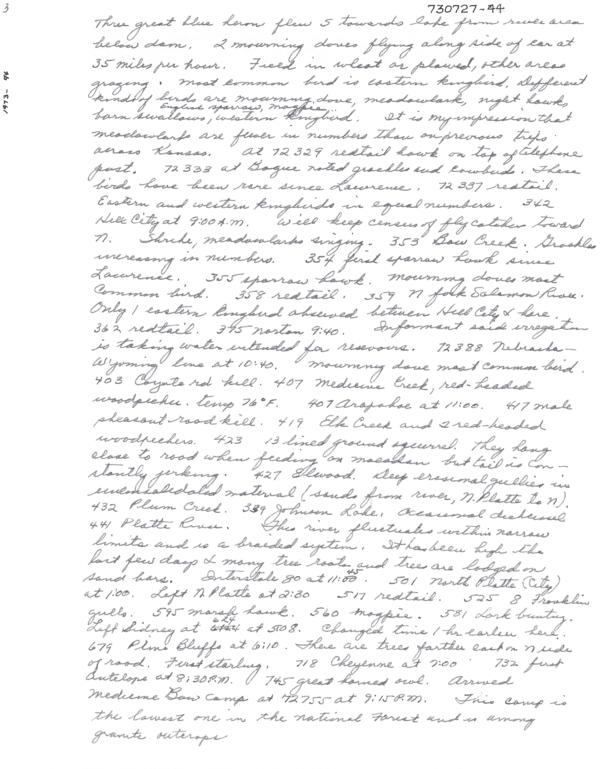 3
730727-44
1973-86
Three great blue heron flew S towards lake from river area
below dam. 2 mourning doves flying along side of car at
35 miles per hour. Field in wheat or plowed, other areas
grazing. Most common bird is eastern kingbird. Different
kinds of birds are mourning dove, meadowlark, night hawks
English sparrow, magpie
barn swallows, western kingbird. It is my impression that
meadowlarks are fewer in numbers than on previous trips
across Kansas. At 72329 redtail hawk on top of telephone
post. 72333 at Bogue noted grackles and cowbirds. These
birds have been rare since Lawrence. 72337 redtail.
Eastern and western kingbirds in equal numbers. 342
Hill City at 9:00 A.M. Will keep census of flycatcher toward
N. Shrike, meadowlarks singing. 353 Bow Creek. Grackles
increasing in numbers. 354 first sparrow hawk since
Lawrence. 355 sparrow hawk. Mourning doves most
common bird. 358 redtail. 359 N fork Solomon River.
Only 1 eastern kingbird observed between Hill City & here.
362 redtail. 375 Norton 9:40. Informant said irrigation
is taking water intended for resevoirs. 72388 Nebraska-
Wyoming line at 10:40. Mourning dove most common bird.
403 Coyote rd kill. 407 Medicine Creek, red-headed
woodpecker. temp 76°F. 407 Arapahoe at 11:00. 417 male
pheasant road kill. 419 Elk Creek and 2 red-headed
woodpeckers. 423 13 lined ground squirrel. They hang
close to road when feeding on macadam but tail is con-
stantly jerking. 427 Elwood. Deep erosional gullies in
unconsolidated material (sands from river, N. Platte to N).
432 Plum Creek. 339 Johnson Lake, occasional dickcissel
441 Platte River. This river fluctuates within narrow
limits and is a braided system. It has been high the
last few days & many tree roots and trees are lodged on
sand bars. Interstate 80 at 11:45. 501 North Platte (City)
at 1:00. Left N Platte at 2:30 517 redtail. 525 8 Franklin
gulls. 545 marsh hawk. 560 magpie. 581 Lark bunting.
Left Sidney at 624 at 5:08. Changed time 1 hr earlier here.
679 Pine Bluffs at 6:10. There are trees farther east on N side
of road. First starling. 718 Cheyenne at 7:00 732 first
antelope at 8:30 P.M. 745 great horned owl. Arrived
Medicine Bow Camp at 72755 at 9:15 P.M. This camp is
the lowest one in the National Forest and is among
granite outcrops